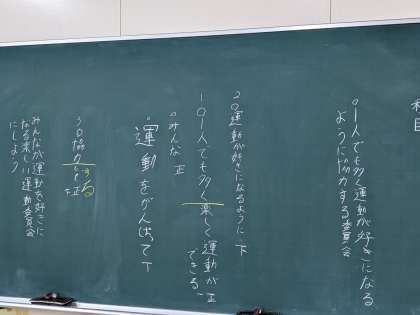 ○1人でも多く運動が好きになる
ように協力する委員会
2○運動が好きになるように 下
1○1人でも多く楽しく運動が 正
できる
○みんな 正
○運動をがんばって 下
3○協力 する 正
みんなが運動を好きに
なる楽しい運動委員会
にしよう